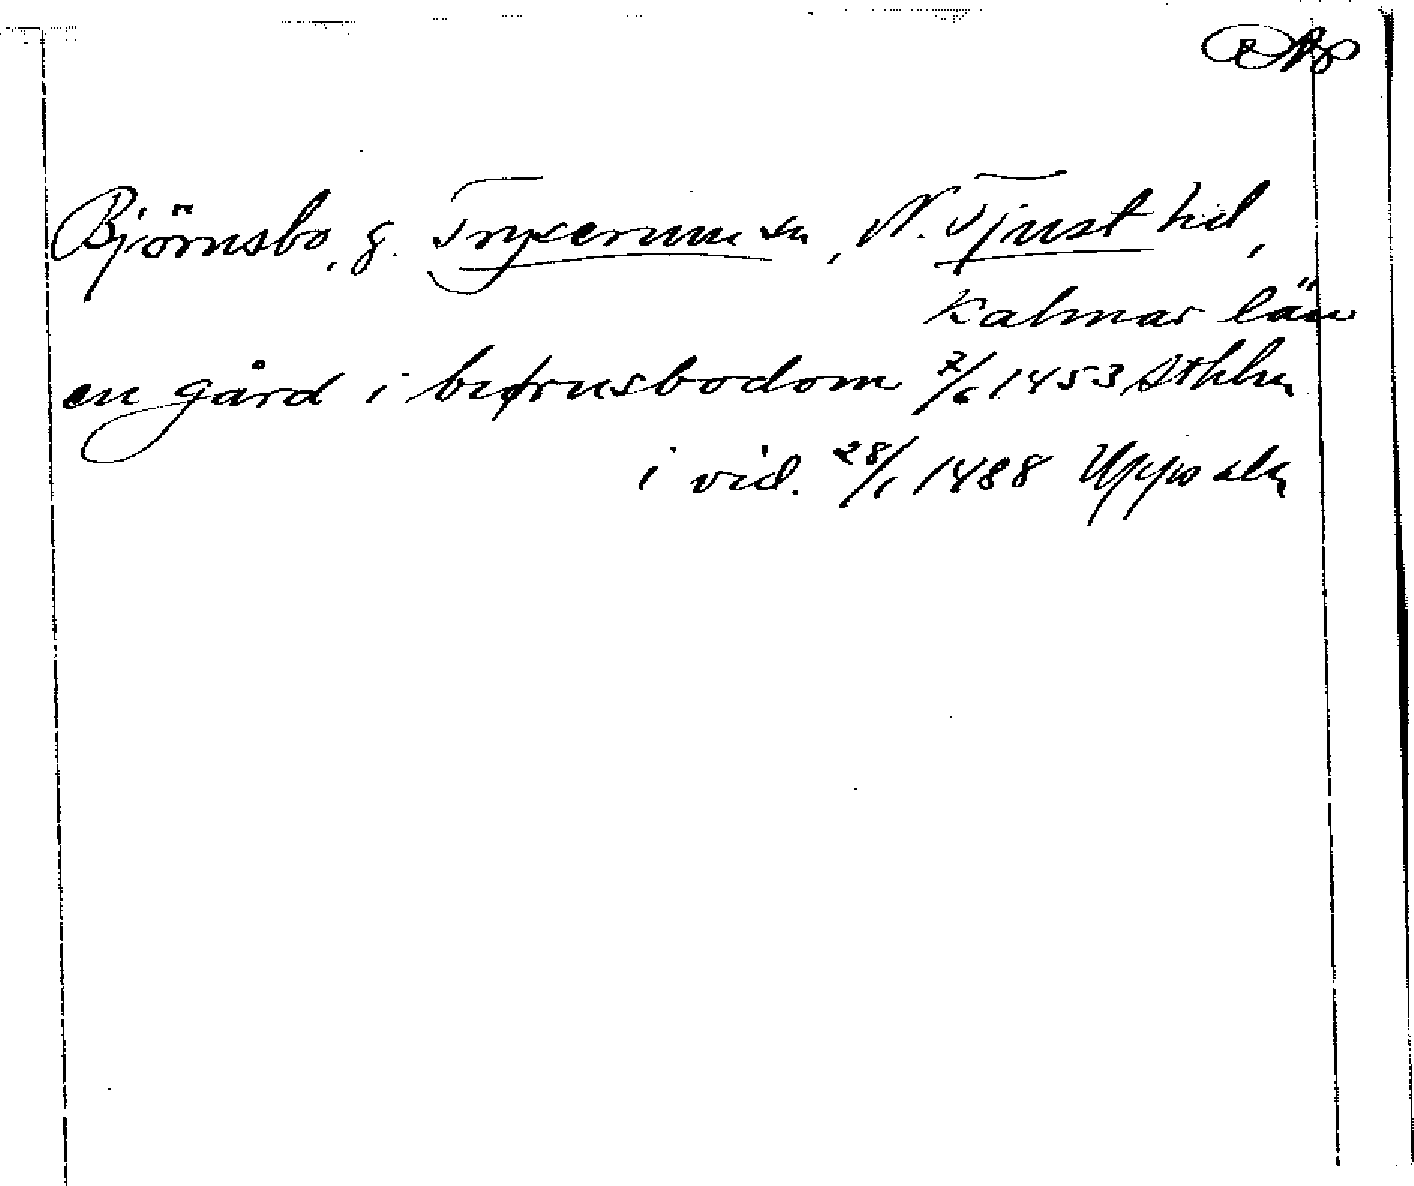 Björnsbo, g. Tryserum sn, N. Tjust hd,
Kalmar län
en gård i biørnsbodom 7/6 1453 Sthlm
i vid. 28/1 1488 Uppsala